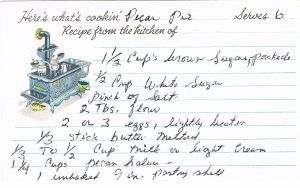 Here's what's cookin' Pecan Pie Serves 6
Recipe from the kitchen of
1 1/2 Cup's brown Sugar, packed
1/2 Cup White Sugar
pinch of Salt
2 Tbs. flour
2 or 3 eggs, lightly beaten
1/3 stick butter melted
1/3 To 1/2 Cup milk or light Cream
1 1/4 Cups pecan halves
1 unbaked 9 in. pastry shell